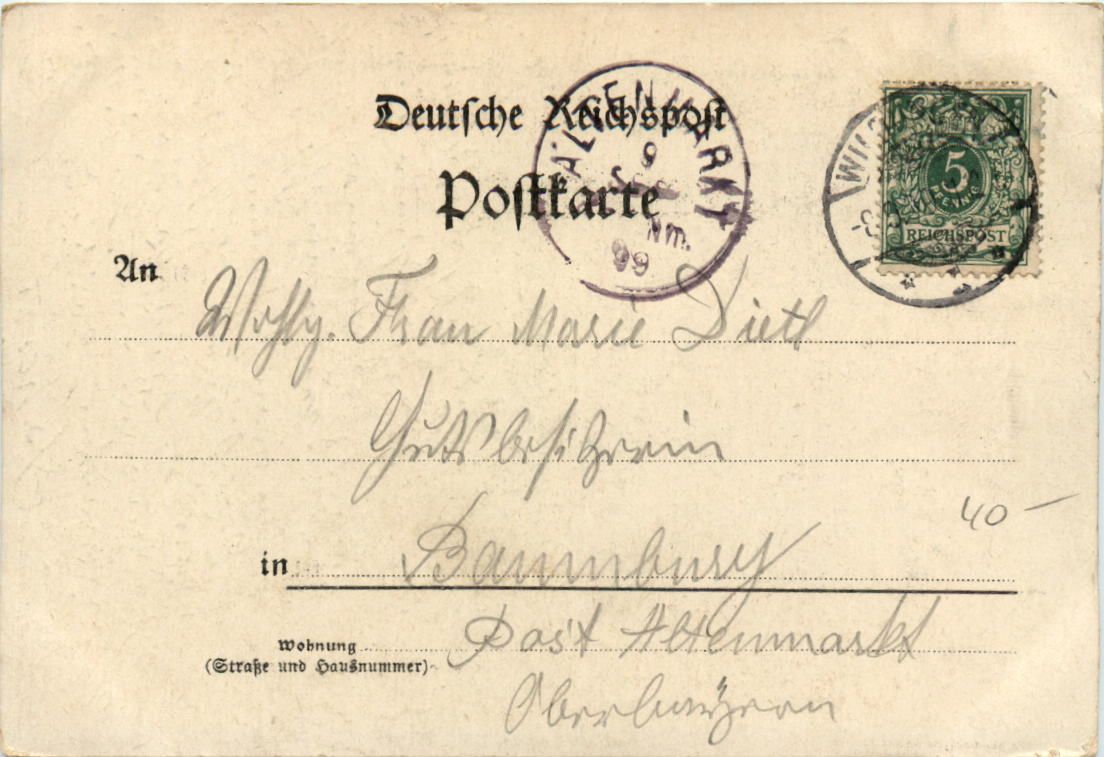 Deutsche Reichspost
Postkarte
ALTENMARKT
9
SEP
Nm.
99
5
PFENNIG
REICHSPOST
An
Wohlg. Frau Marie Dietl
Gutsbesitzerin
in Baumburg
40 –
Wohnung
(Straße und Hausnummer)
Post Altenmarkt
Oberbayern